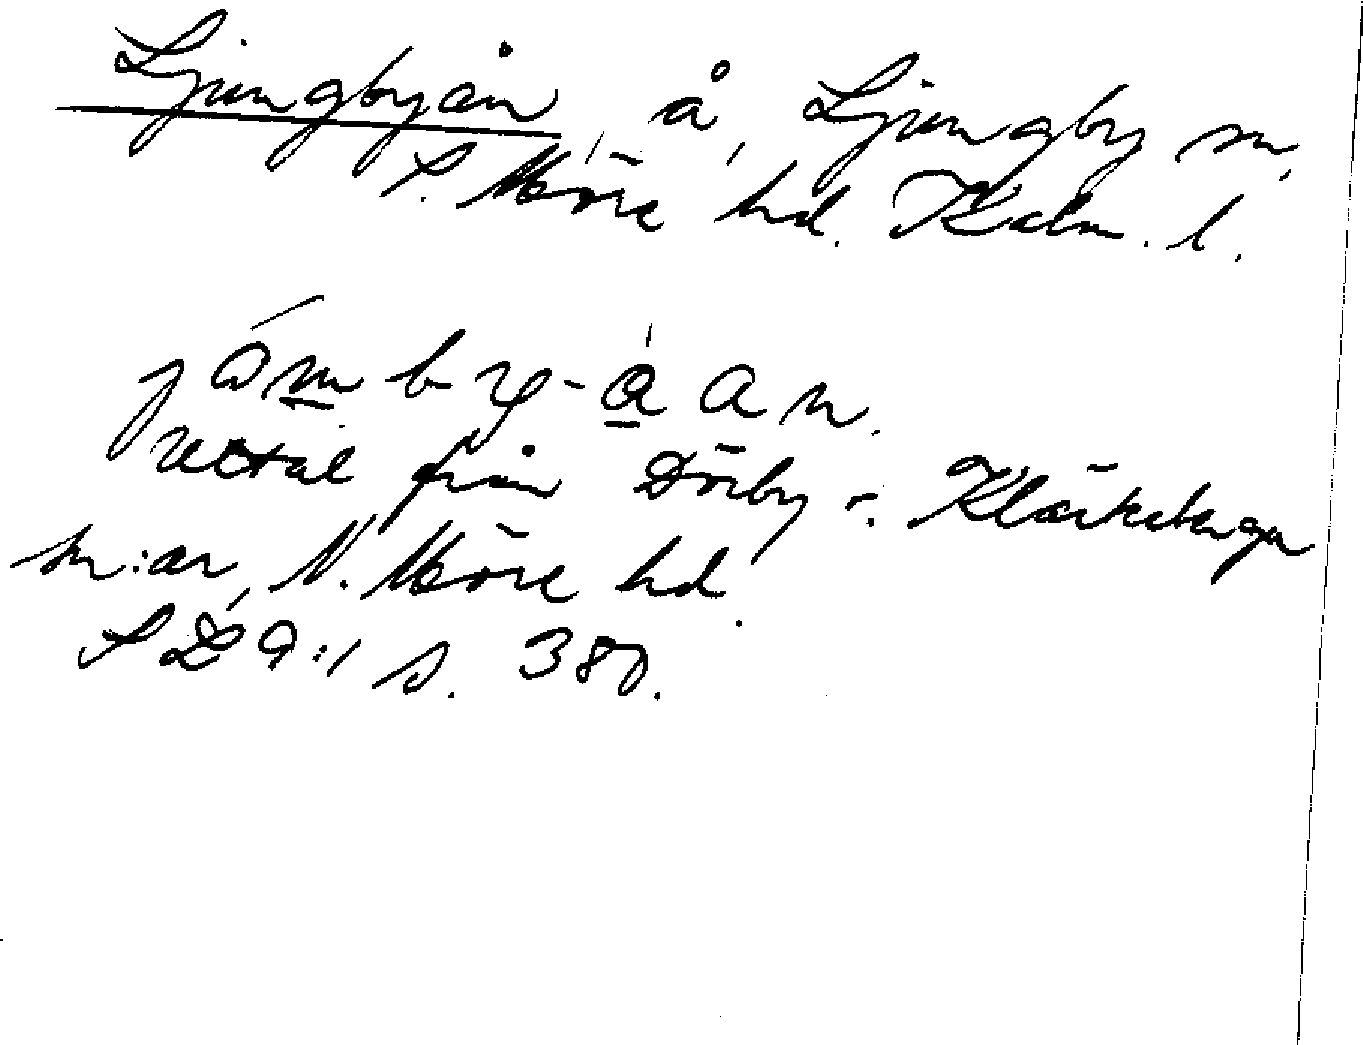 Ljungbyån, å, Ljungby sn,
S. Möre hd. Kalm. l.
uttal från Dörby o. Kläckeberga
sn:ar, N. Möre hd.
s. 380.